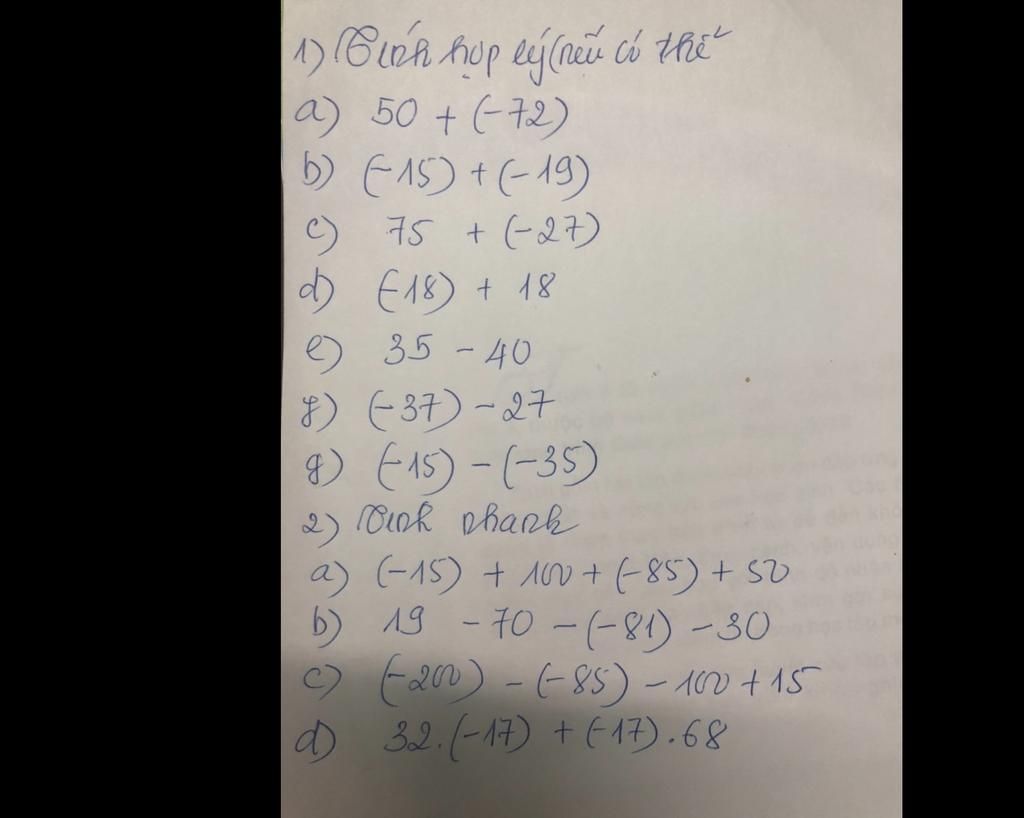 1) Tính hợp lý (nếu có thể
a) 50 + (-72)
b) (-15) + (-19)
c) 75 + (-27)
d) (-18) + 18
e) 35 - 40
f) (-37) - 27
g) (-15) - (-35)
2) Tính nhanh
a) (-15) + 100 + (-85) + 50
b) 19 - 70 - (-81) - 30
c) (-200) - (-85) - 100 + 15
d) 32.(-17) + (-17).68